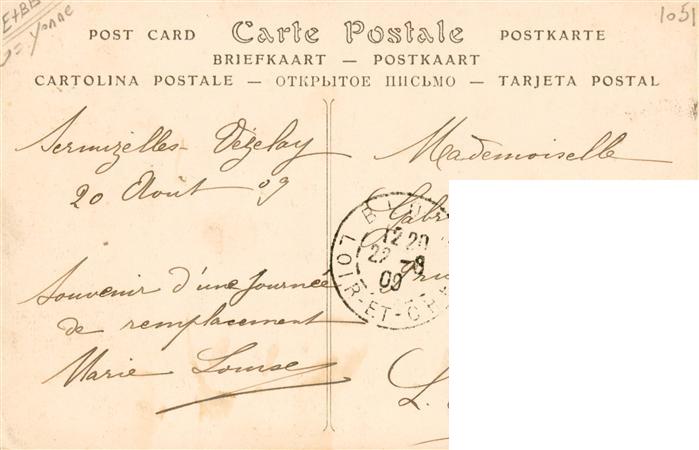 1051
Yonne
POST CARD Carte Postale POSTKARTE
BRIEFKAART — POSTKAART
CARTOLINA POSTALE — ОТКРЫТОЕ ПИСЬМО — TARJETA POSTAL
Sermizelles Vézelay
20 Août 09
Souvenir d'une journée
de remplacement
Marie Louise
Mademoiselle
Gabr
L.
12 20
22 -8
09
LOIR-ET-CH